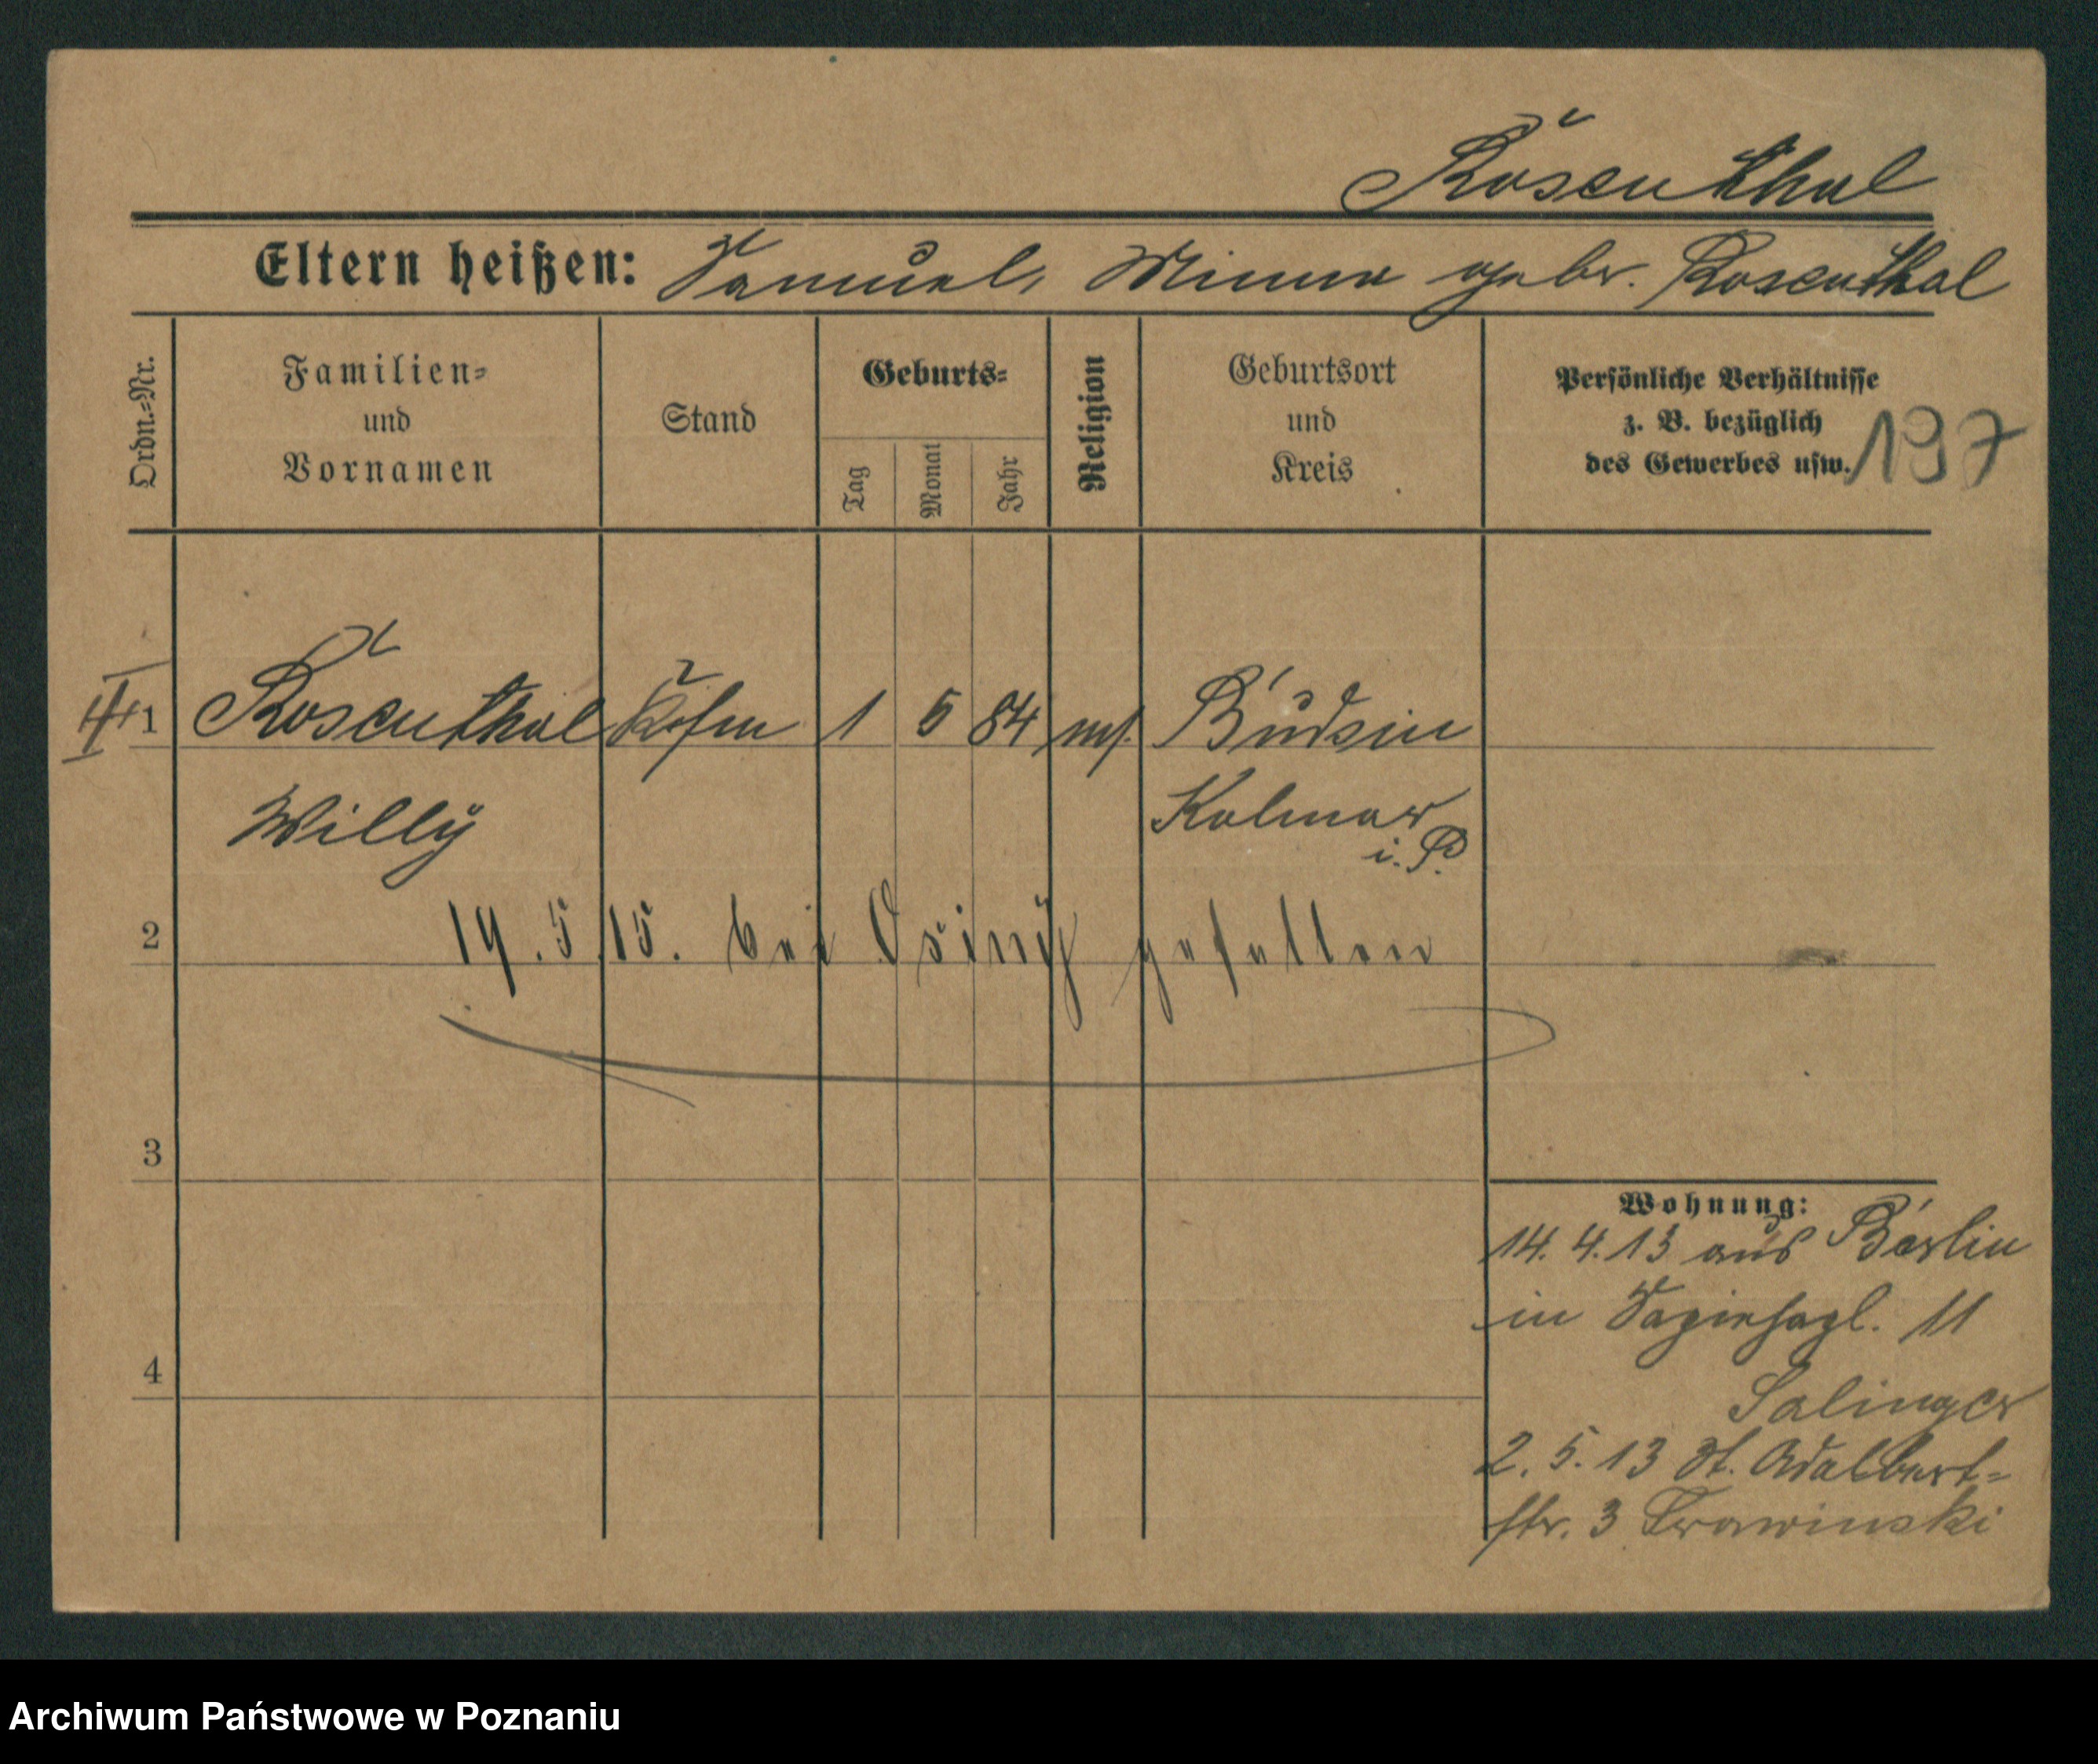 Rosenthal
Eltern heißen: Samuel, Minna gebr. Rosenthal
Ordn.-Nr.
Familien-
und
Vornamen
Stand
Geburts-
Tag
Monat
Jahr
Religion
Geburtsort
und
Kreis
Persönliche Verhältnisse
z. B. bezüglich
des Gewerbes usw.
197
1 Rosenthal Kfm 1 5 84 ms. Budsin
Willy
Kolmar
i. P.
2
19. 5. 15. bei Osiny gefallen
3
4
Wohnung:
14. 4. 13 aus Berlin
in Sapiehapl. 11
Salinger
2. 5. 13 St. Adalbert-
str. 3 Trawinski
Archiwum Państwowe w Poznaniu